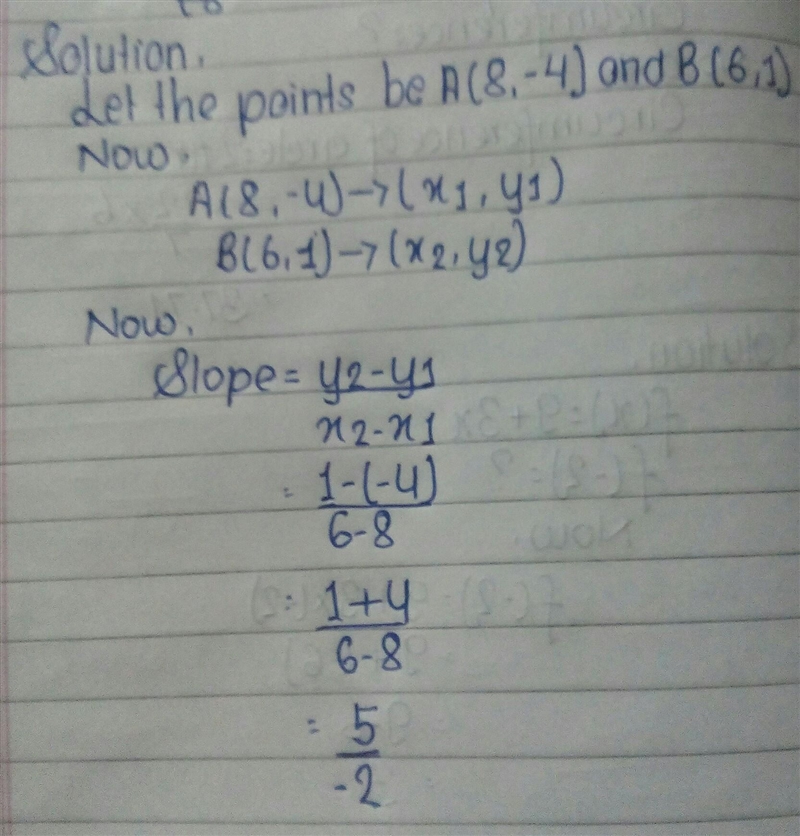 Solution.
Let the points be A(8,-4) and B(6,1)
Now.
A(8,-4)→(x1, y1)
B(6,1)→(x2, y2)
Now.
Slope = y2-y1
x2-x1
= 1-(-4)
6-8
= 1+4
6-8
= 5
-2